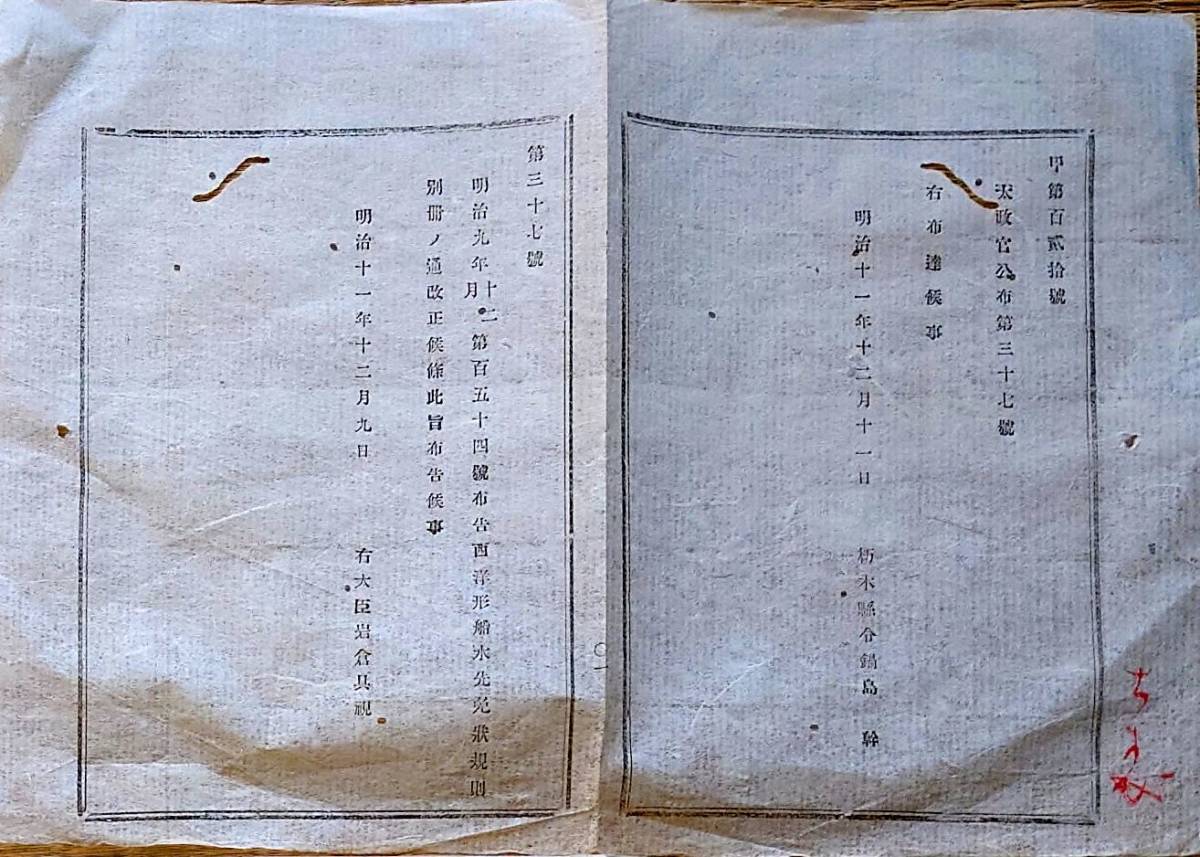 甲第百貳拾號
太政官公布第三十七號
右布達候事
明治十一年十二月十一日　栃木縣令鍋島幹
第三十七號
明治九年十二月第百五十四號布告西洋形船水先免狀規則
別冊ノ通改正候條此旨布告候事
明治十一年十二月九日　右大臣岩倉具視